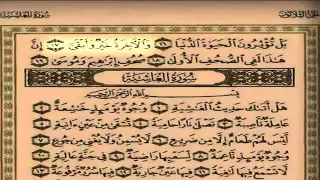 سورة الغاشية
الجزء الثلاثون
بَلْ تُؤْثِرُونَ الْحَيَوٰةَ الدُّنْيَا ١٦ وَالْأَخِرَةُ خَيْرٌ وَأَبْقَىٰ ١٧ إِنَّ
هَٰذَا لَفِي الصُّحُفِ الْأُولَىٰ ١٨ صُحُفِ إِبْرَاهِيمَ وَمُوسَىٰ ١٩
سُورَةُ الْغَاشِيَةِ
بِسْمِ اللَّهِ الرَّحْمَٰنِ الرَّحِيمِ
هَلْ أَتَىٰكَ حَدِيثُ الْغَٰشِيَةِ ١ وُجُوهٌ يَوْمَئِذٍ خَٰشِعَةٌ ٢
عَامِلَةٌ نَّاصِبَةٌ ٣ تَصْلَىٰ نَارًا حَامِيَةً ٤ تُسْقَىٰ مِنْ عَيْنٍ ءَانِيَةٍ ٥
لَّيْسَ لَهُمْ طَعَامٌ إِلَّا مِن ضَرِيعٍ ٦ لَّا يُسْمِنُ وَلَا يُغْنِي مِن جُوعٍ
٧ وُجُوهٌ يَوْمَئِذٍ نَّاعِمَةٌ ٨ لِّسَعْيِهَا رَاضِيَةٌ ٩ فِي جَنَّةٍ عَالِيَةٍ
١٠ لَّا تَسْمَعُ فِيهَا لَٰغِيَةً ١١ فِيهَا عَيْنٌ جَارِيَةٌ ١٢ فِيهَا سُرُرٌ مَّرْفُوعَةٌ